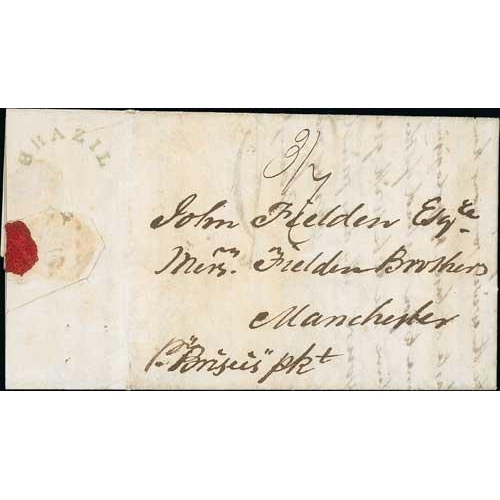 BRAZIL
3/7
John Fielden Esqre
Messrs. Fielden Brothers
Manchester
pr "Briseis" pkt